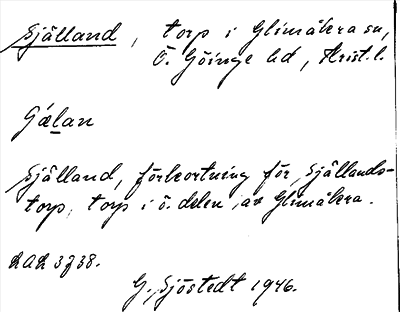 Själland, torp i Glimåkra sn,
Ö. Göinge hd, Krist. l.
Själland, förkortning för Själlands-
torp, torp i ö. delen av Glimåkra.
G. Sjöstedt 1946.